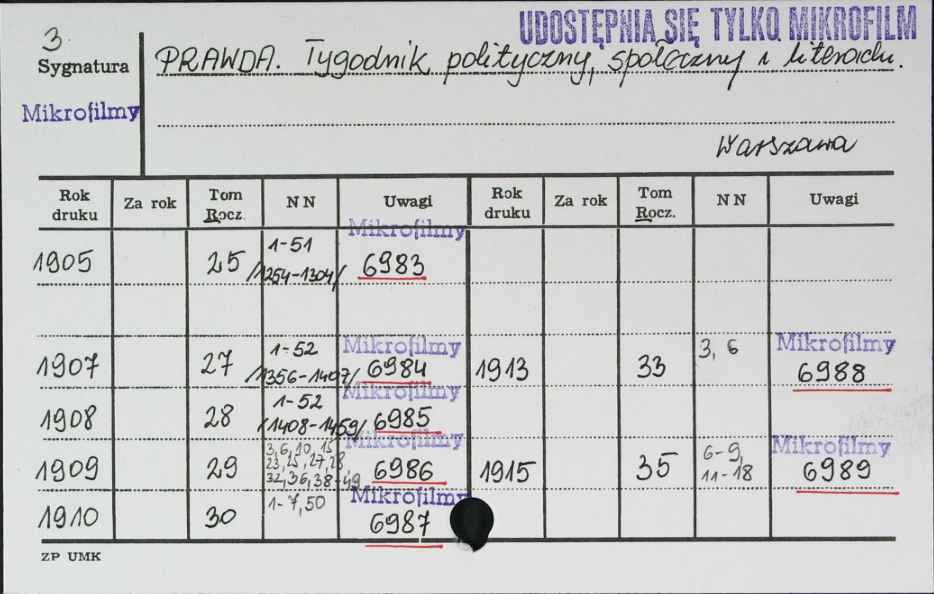 UDOSTĘPNIA SIĘ TYLKO MIKROFILM
3
Sygnatura
PRAWDA. Tygodnik polityczny, społeczny i literacki.
Mikrofilmy
Warszawa
Rok druku Za rok Tom Rocz. NN Uwagi Rok druku Za rok Tom Rocz. NN Uwagi
Mikrofilmy
1905 25 1-51 /1254-1304/ 6983
Mikrofilmy Mikrofilmy
1907 27 1-52 /1356-1407/ 6984 1913 33 3, 6 6988
Mikrofilmy
1908 28 1-52 /1408-1459/ 6985
Mikrofilmy Mikrofilmy
1909 29 3, 6, 10, 15, 23, 25, 27, 28, 32, 36, 38-49 6986 1915 35 6-9, 11-18 6989
Mikrofilmy
1910 30 1-7, 50 6987
ZP UMK